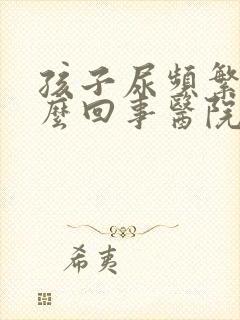 孩子尿頻繁
麽回事醫院
希夷